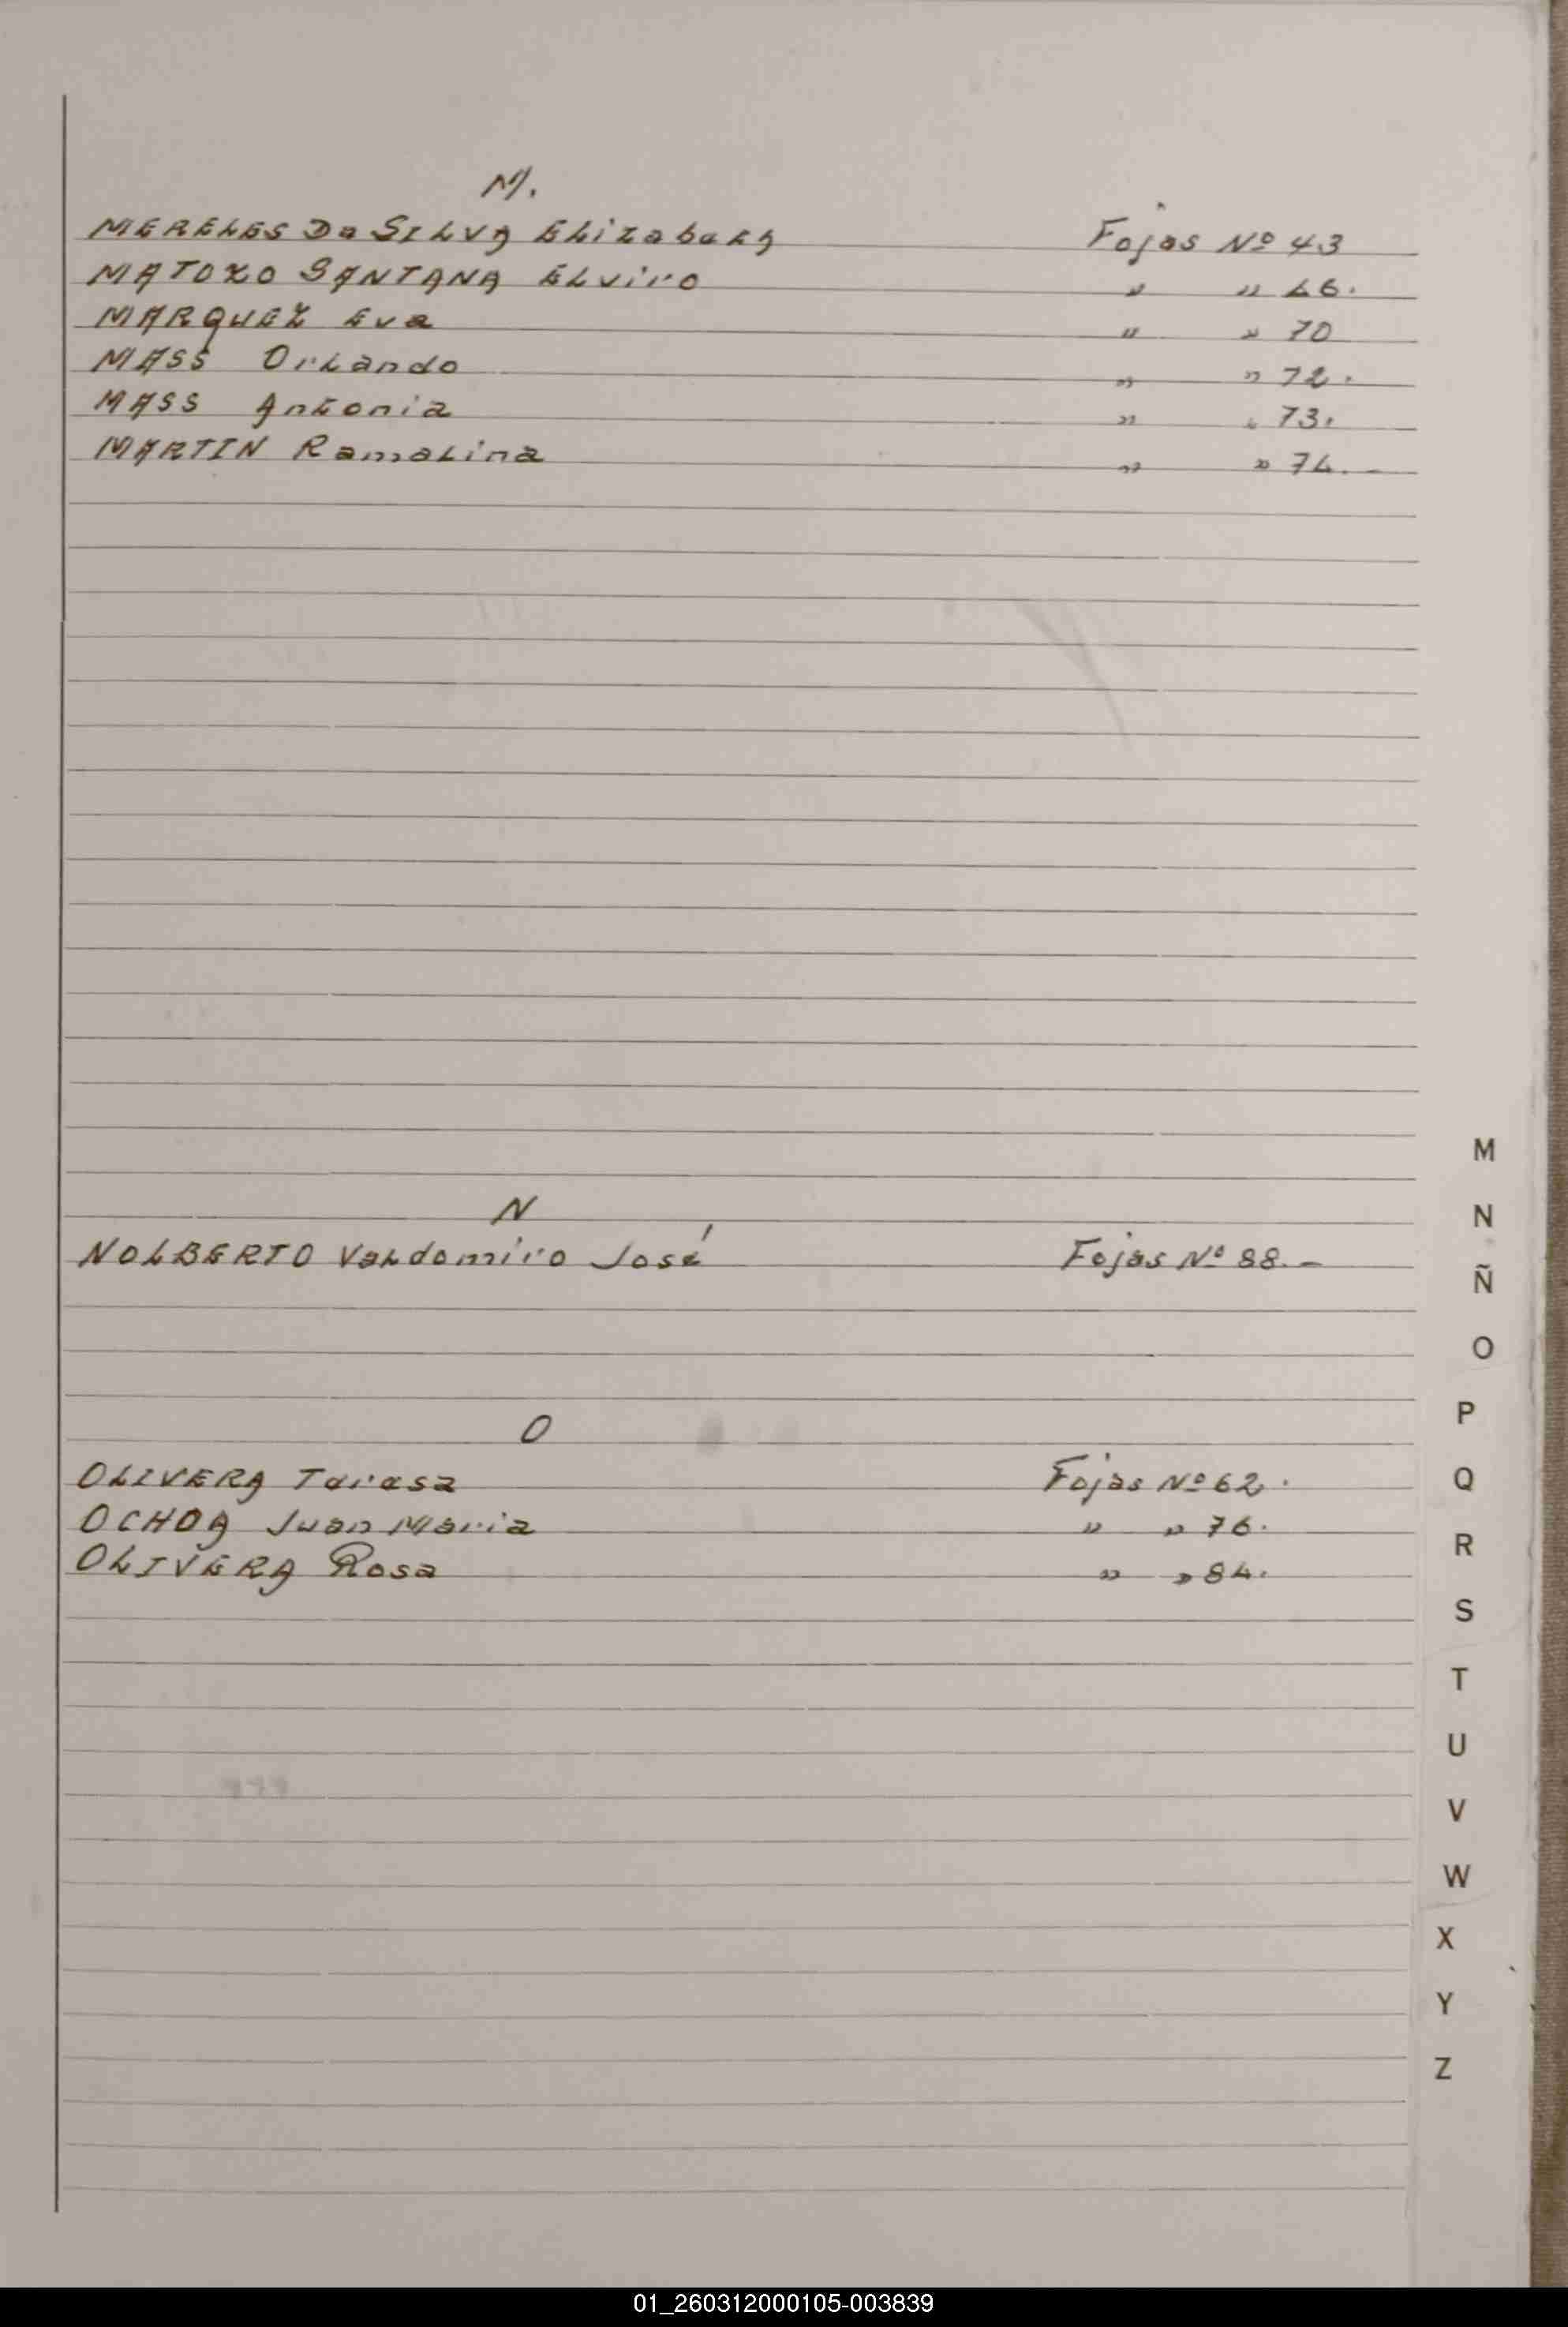 M.
MERELES Da SILVA Elizabeth Fojas Nº 43
MATOZO SANTANA Elviro " " 46.
MARQUEZ Eva " " 70
MASS Orlando " " 72.
MASS Antonia " " 73.
MARTIN Ramalina " " 74.-
N
NOLBERTO Valdomiro José Fojas Nº 88.-
O
OLIVERA Teresa Fojas Nº 62.
OCHOA Juan Maria " " 76.
OLIVERA Rosa " " 84.
M
N
Ñ
O
P
Q
R
S
T
U
V
W
X
Y
Z
01_260312000105-003839